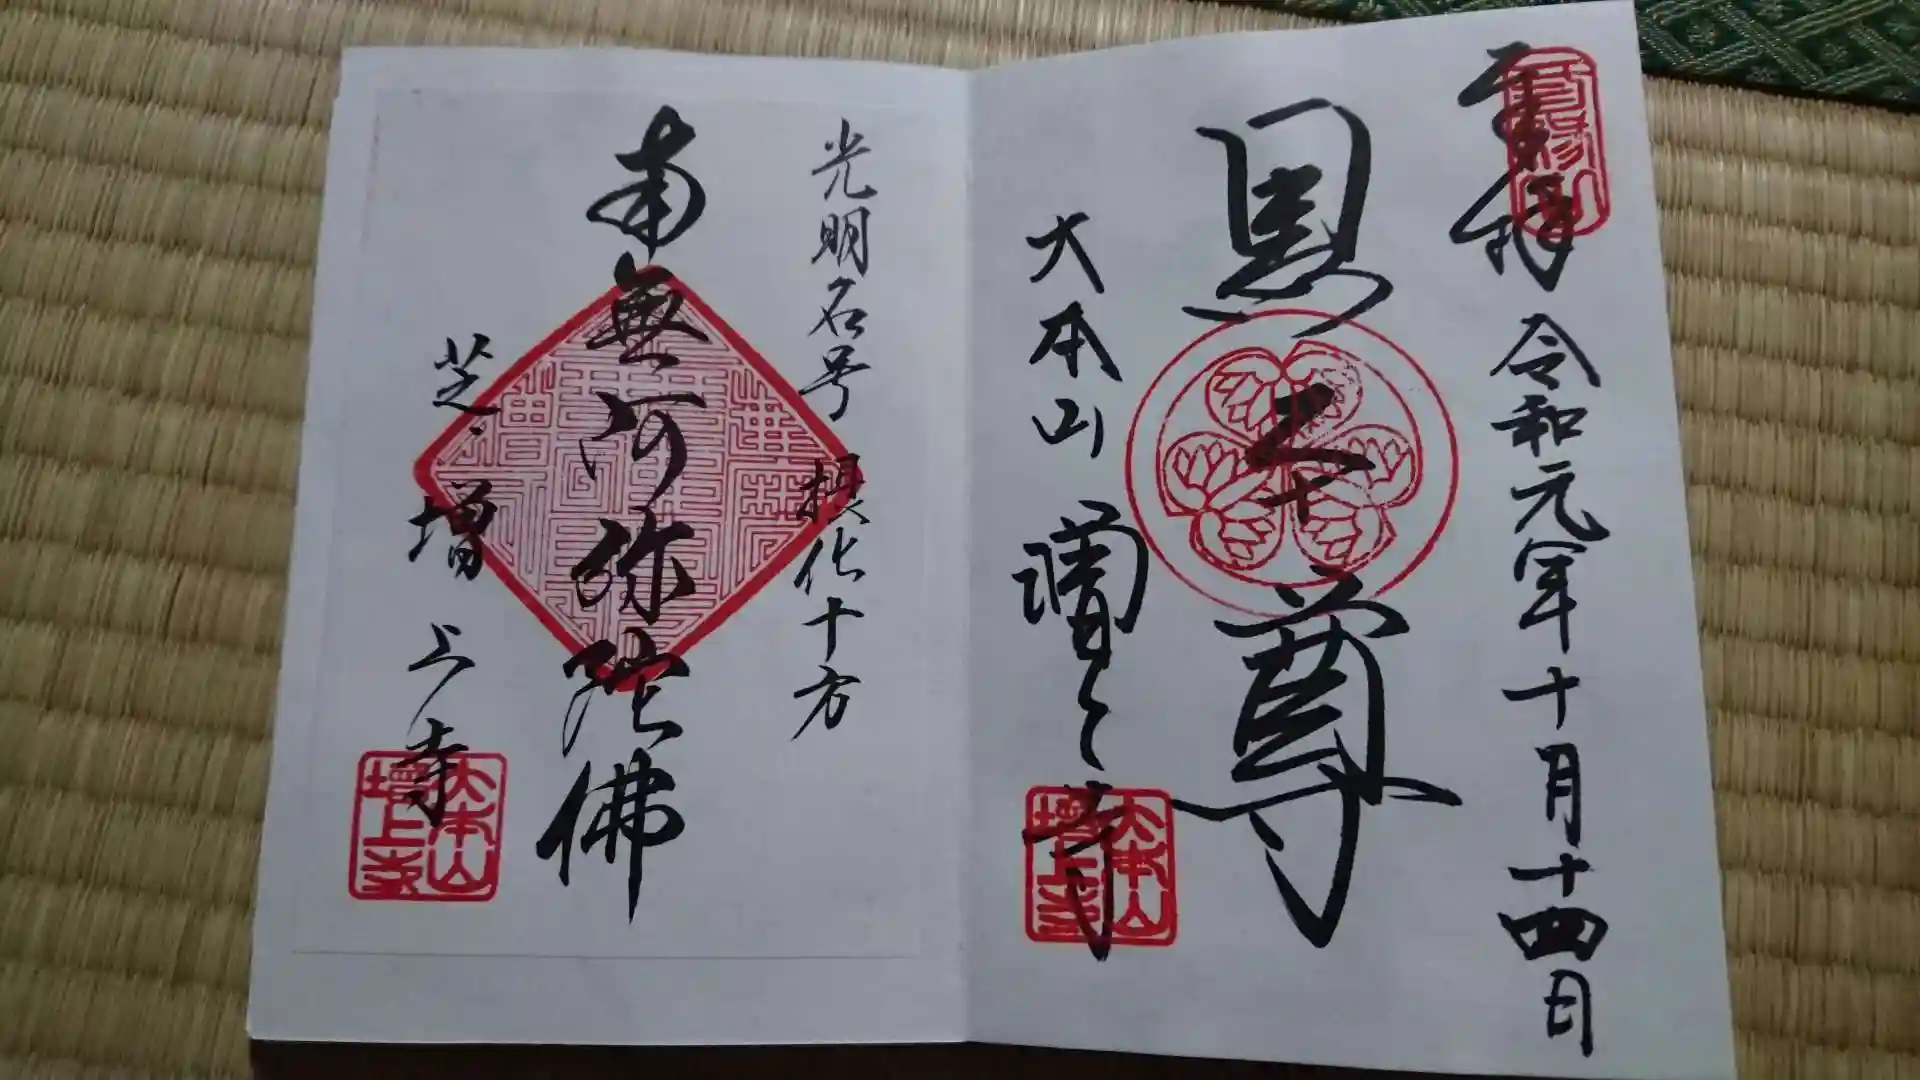 奉拝 令和元年十月十四日
黒本尊
大本山 増上寺
大本山
増上寺
光明名号 摂化十方
南無阿弥陀佛
芝 増上寺
大本山
増上寺